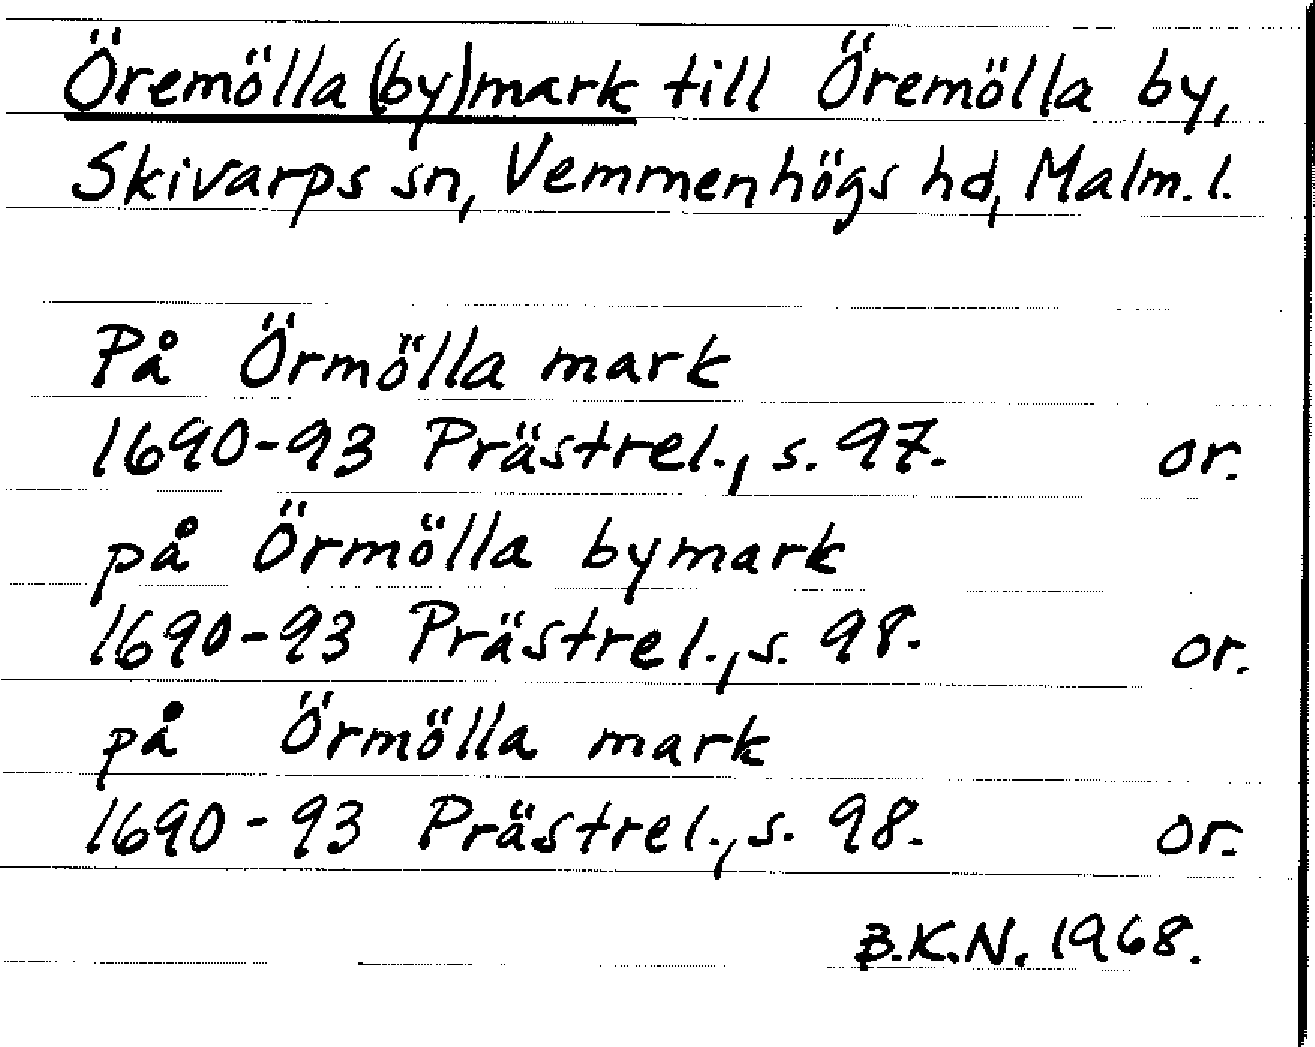 Öremölla (by)mark till Öremölla by,
Skivarps sn, Vemmenhögs hd, Malm. l.
På Örmölla mark
1690-93 Prästrel., s. 97. or.
på Örmölla bymark
1690-93 Prästrel., s. 98. or.
på Örmölla mark
1690-93 Prästrel., s. 98. or.
B.K.N. 1968.